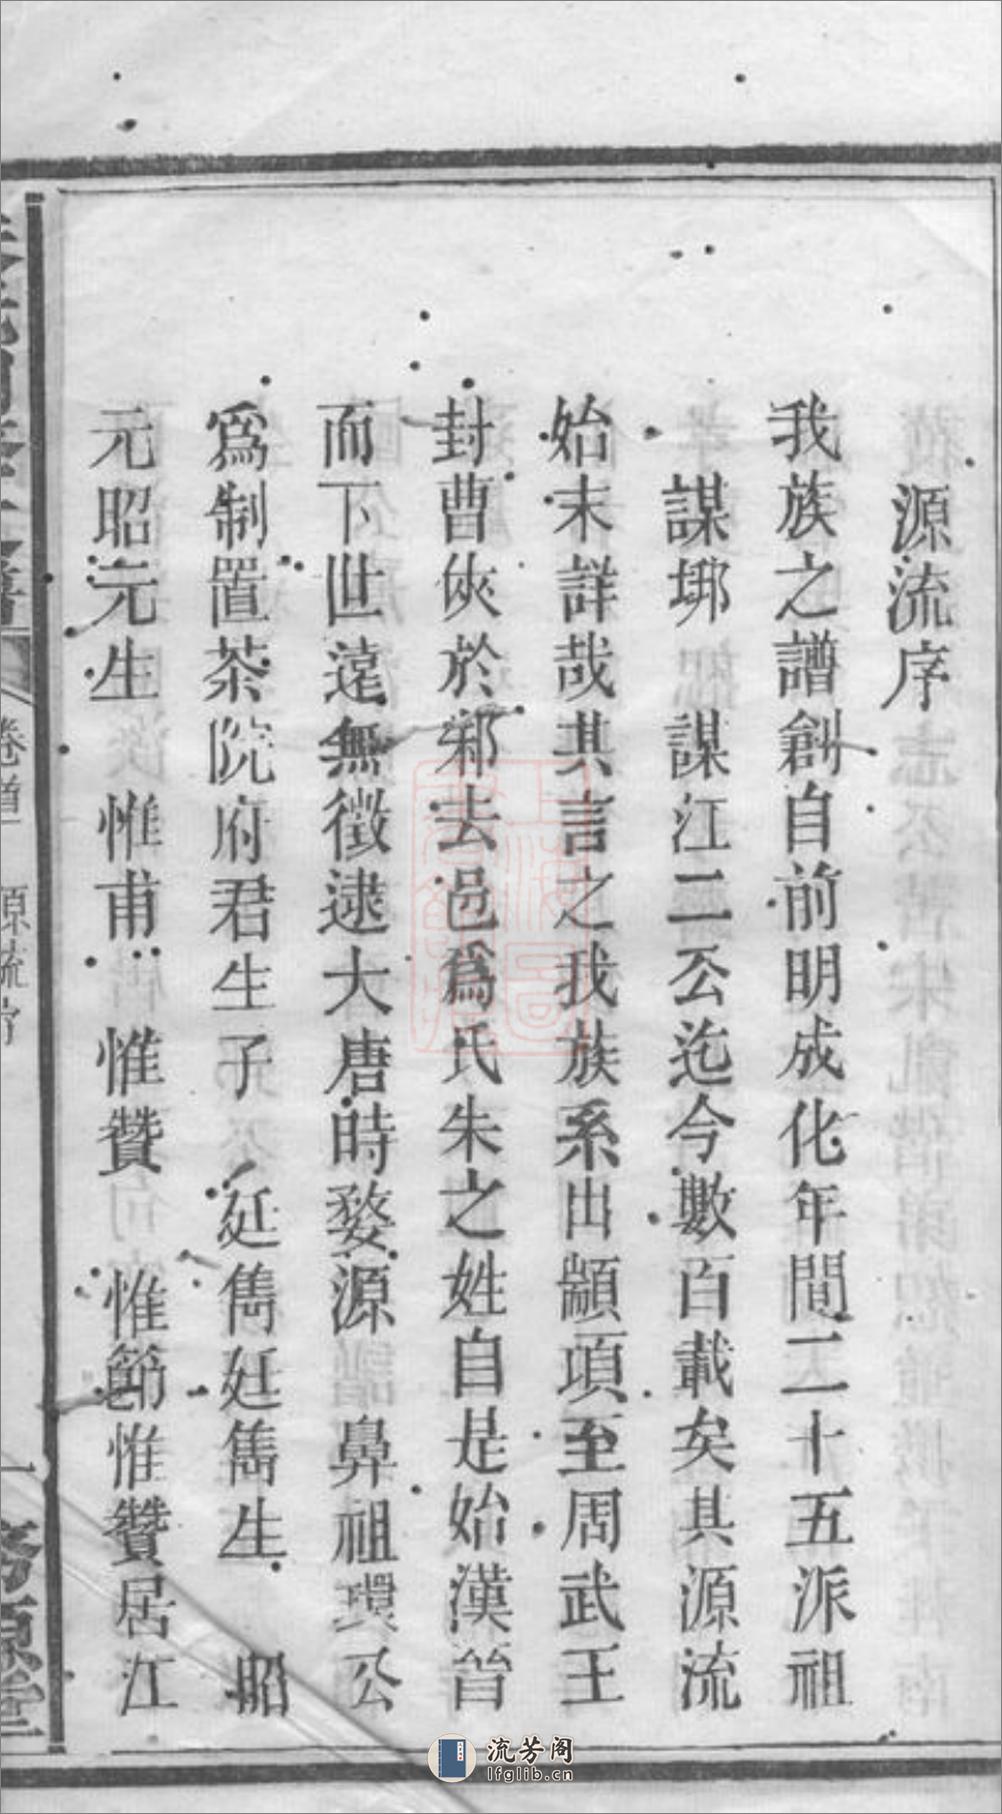 源流序
我族之譜創自前明成化年間二十五派祖
謀㙇　謀江二公迄今數百載矣其源流
始末詳哉其言之我族系出顓頊至周武王
封曹俠於邾去邑爲氏朱之姓自是始漢晉
而下世遠無徵逮大唐時婺源　鼻祖瓌公
爲制置茶院府君生子　廷雋廷雋生　昭
元昭元生　惟甫　惟贊　惟節惟贊居江
卷首
源流序
一
流芳阁
lfglib.cn